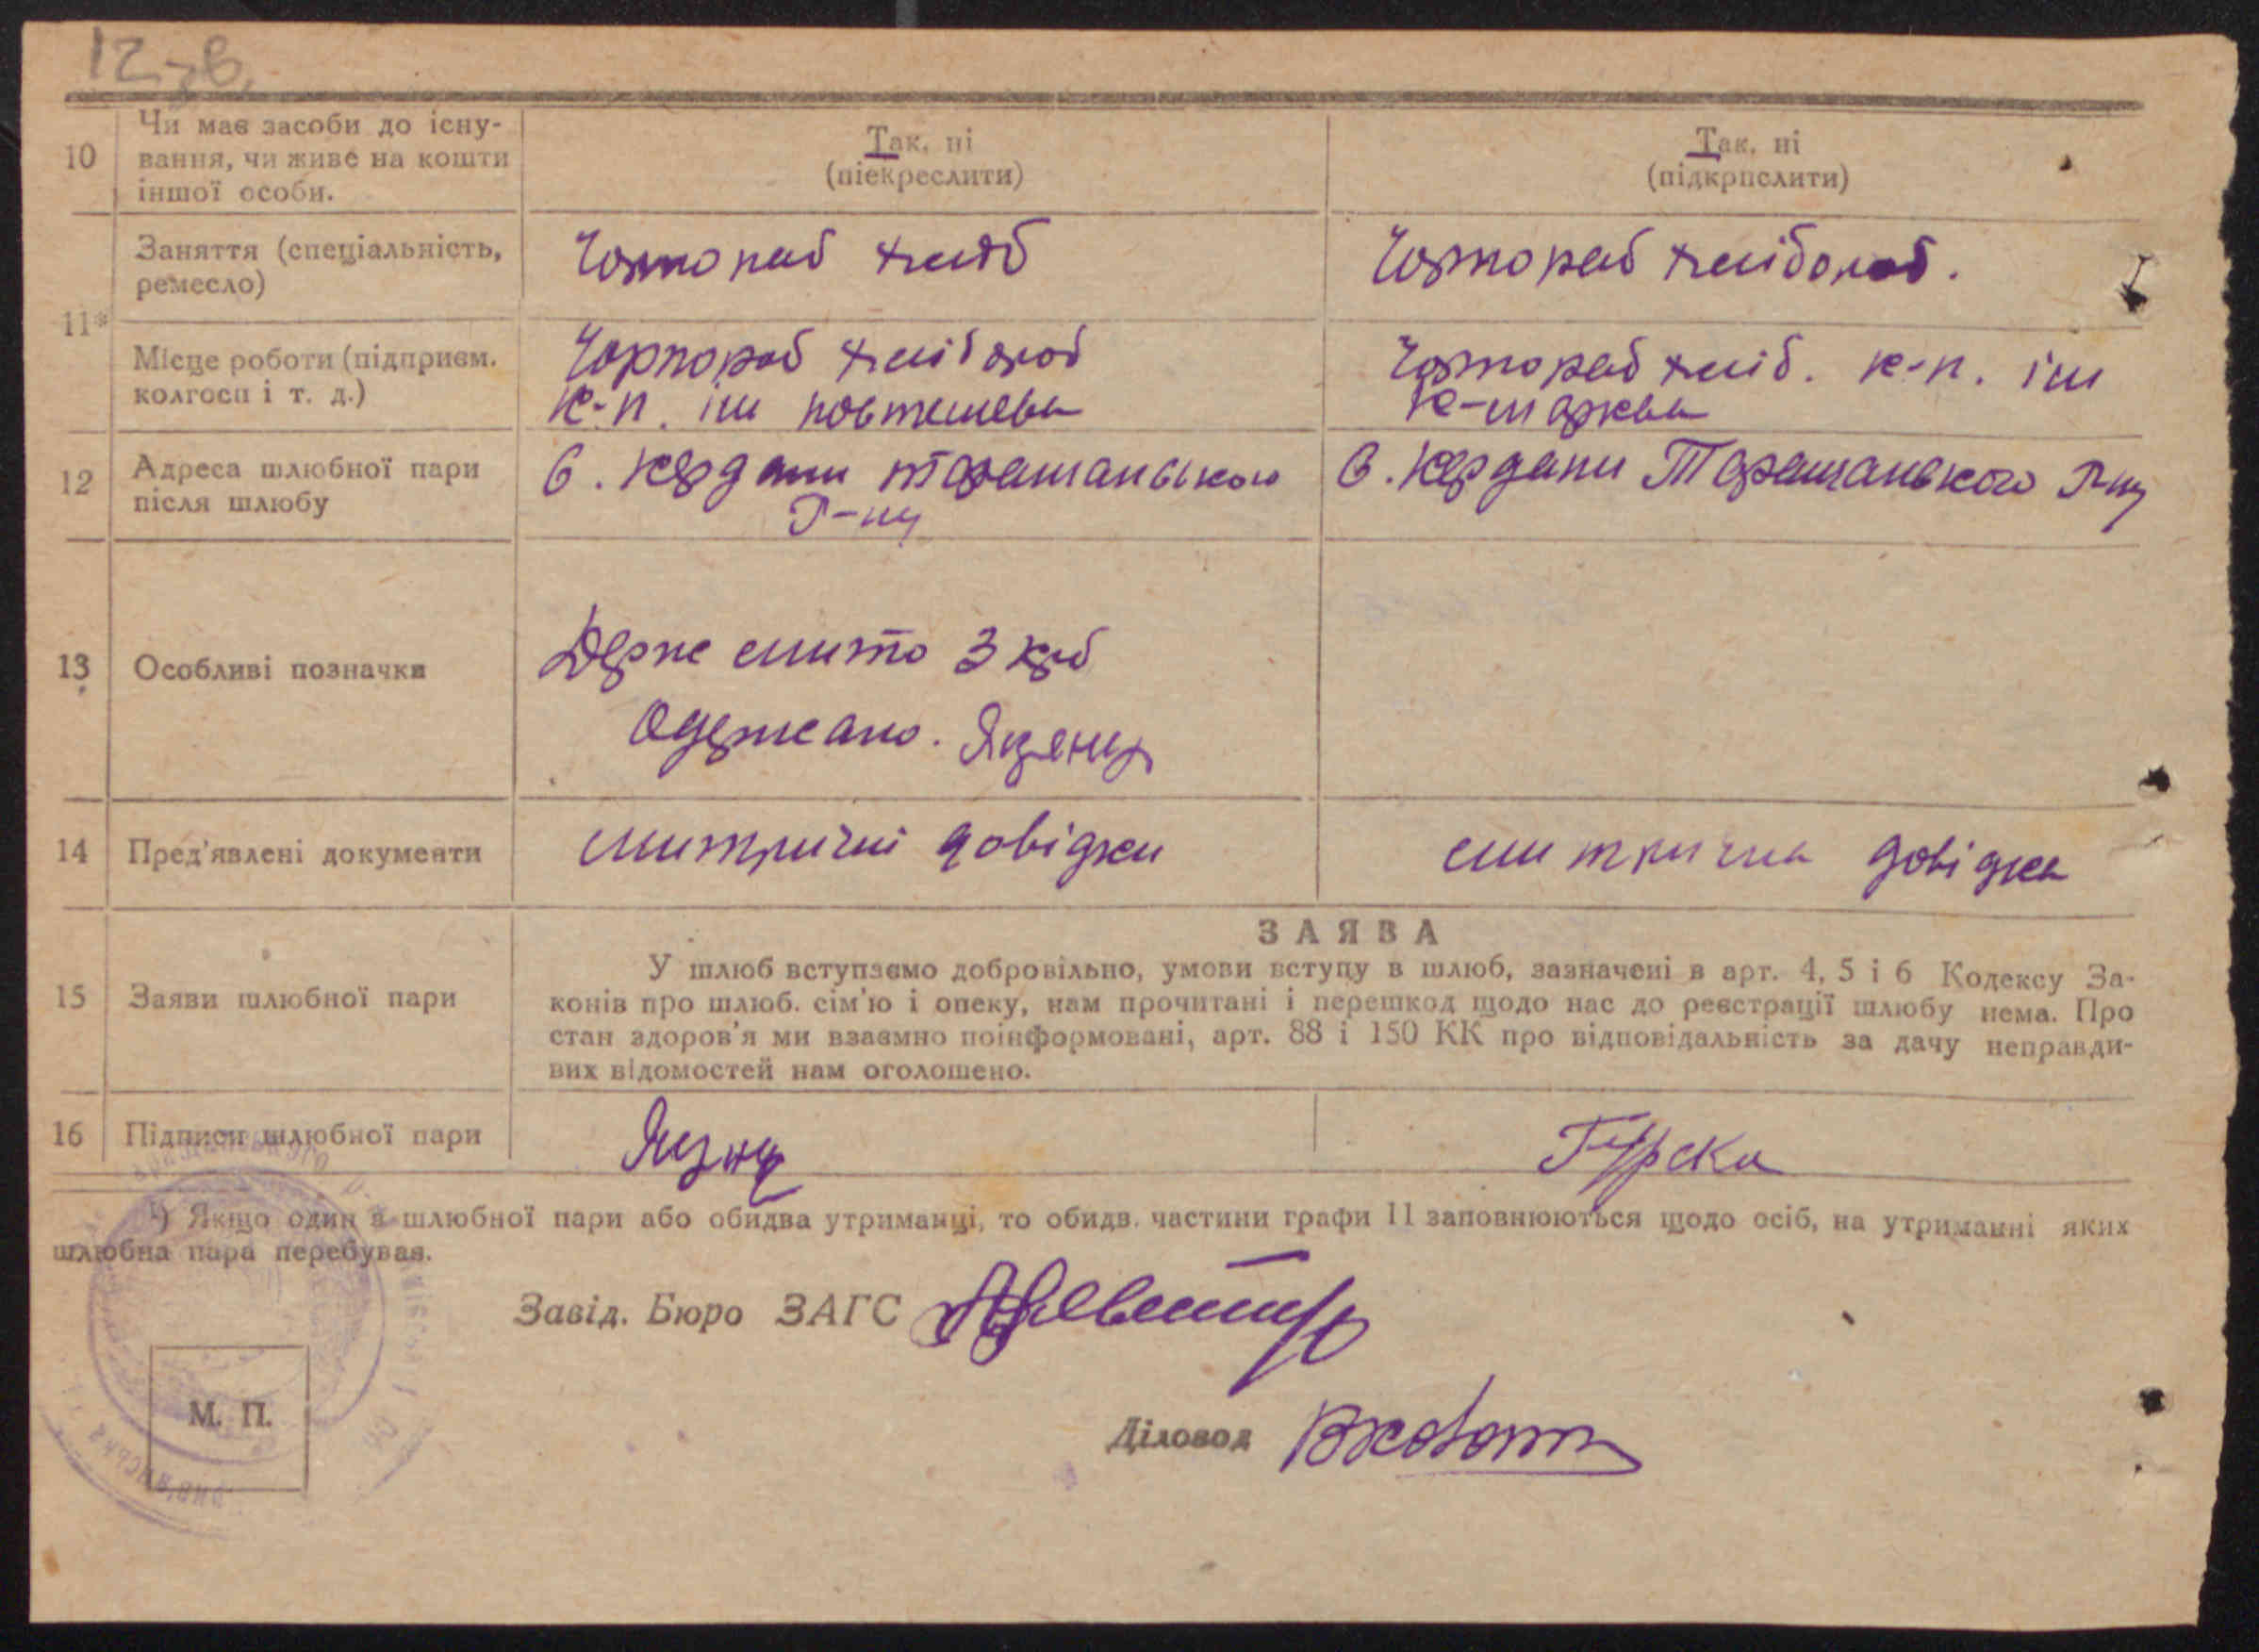 12
10
Чи має засоби до існу-
вання, чи живе на кошти
іншої особи.
Так, ні
(піекреслити)
Так, ні
(підкрпслити)
11*
Заняття (спеціальність,
ремесло)
Чорнораб хліб
Чорнораб хлібороб.
Місце роботи (підприєм.
колгосп і т. д.)
Чорнораб хлібороб
к-п. ім
Чорнораб хліб. к-п. ім
к-маркса
12
Адреса шлюбної пари
після шлюбу
С. Кердани Таращанського
Р-ну
С. Кердани Таращанського Р-ну
13
Особливі позначки
Держ мито 3 крб
Одержано.
14
Пред'явлені документи
митричні довідки
митрична довідка
15
Заяви шлюбної пари
ЗАЯВА
У шлюб вступаємо добровільно, умови вступу в шлюб, зазначені в арт. 4, 5 і 6 Кодексу За-
конів про шлюб. сім'ю і опеку, нам прочитані і перешкод щодо нас до реєстрації шлюбу нема. Про
стан здоров'я ми взаємно поінформовані, арт. 88 і 150 КК про відповідальність за дачу неправди-
вих відомостей нам оголошено.
16
Підписи шлюбної пари
Гурска
¹) Якщо один з шлюбної пари або обидва утриманці, то обидв. частини графи 11 заповнюються щодо осіб, на утриманні яких
шлюбна пара перебуває.
Завід. Бюро ЗАГС
М. П.
Діловод